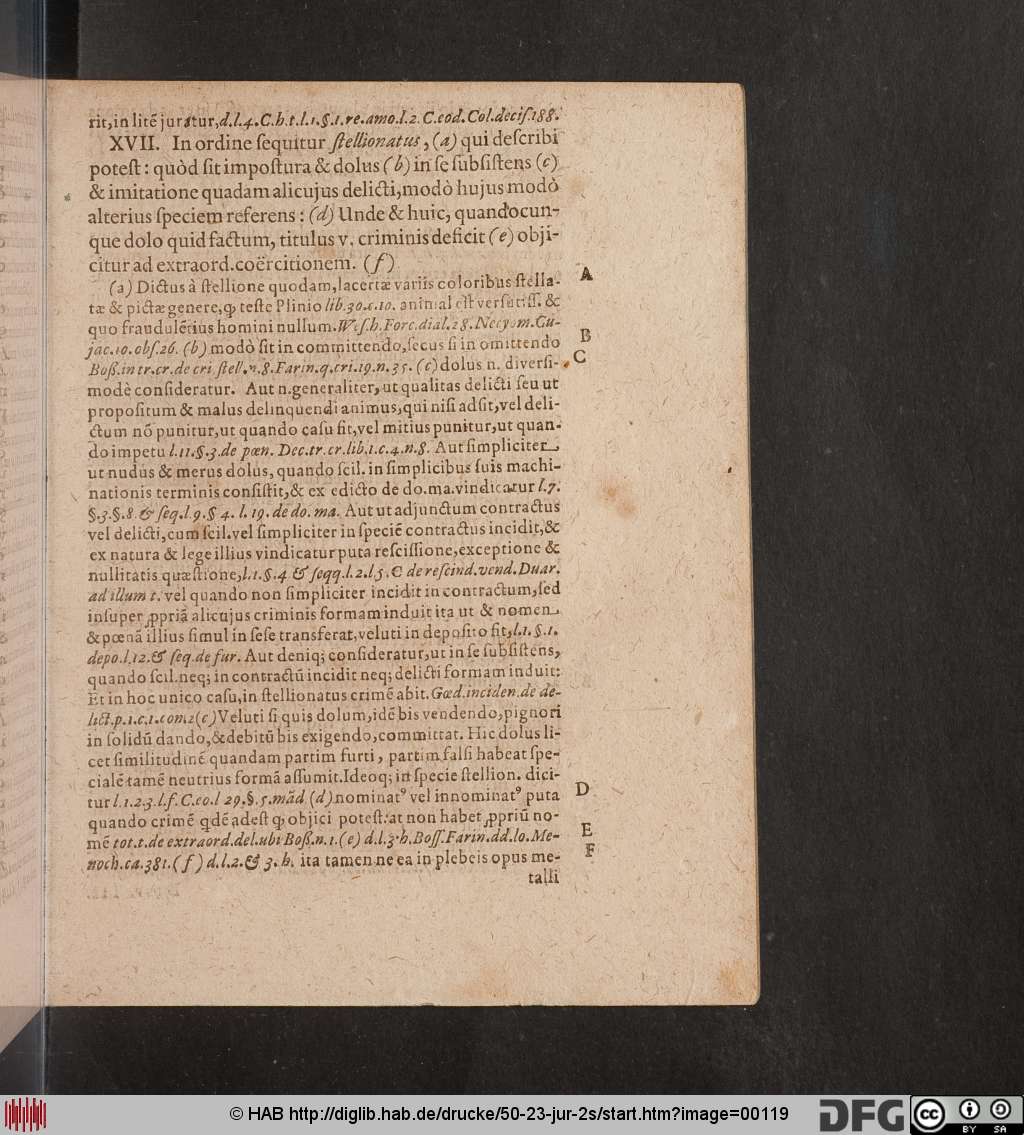 rit, in litē juratur, d.l.4.C.h.t.l.1.§.1.re.amo.l.2.C.eod.Col.decis.188.
XVII. In ordine ſequitur ſtellionatus, (a) qui deſcribi
poteſt: quòd ſit impoſtura & dolus (b) in ſe ſubſiſtens (c)
& imitatione quadam alicujus delicti, modò hujus modò
alterius ſpeciem referens: (d) Unde & huic, quandocun-
que dolo quid factum, titulus v. criminis deficit (e) obji-
citur ad extraord. coërcitionem. (f)
(a) Dictus à ſtellione quodam, lacertæ variis coloribus ſtella-
tæ & pictæ genere, ꝙ teſte Plinio lib.30.c.10. animal eſt verſutiſſ. &
quo fraudulētius homini nullum. Weſ.h. Forc.dial.28. Necyom. Cu-
jac.10.obſ.26. (b) modò ſit in committendo, ſecus ſi in omittendo
Boß.in tr.cr.de cri.ſtell.n.8.Farin.q.cri.19.n.35. (c) dolus n. diverſi-
modè conſideratur. Aut n. generaliter, ut qualitas delicti ſeu ut
propoſitum & malus delinquendi animus, qui niſi adſit, vel deli-
ctum nō punitur, ut quando caſu fit, vel mitius punitur, ut quan-
do impetu l.11.§.3.de pœn. Dec.tr.cr.lib.1.c.4.n.8. Aut ſimpliciter
ut nudus & merus dolus, quando ſcil. in ſimplicibus ſuis machi-
nationis terminis conſiſtit, & ex edicto de do.ma. vindicatur l.7.
§.3.§.8.& ſeq.l.9.§ 4. l.19.de do. ma. Aut ut adjunctum contractus
vel delicti, cum ſcil. vel ſimpliciter in ſpeciē contractus incidit, &
ex natura & lege illius vindicatur puta reſciſſione, exceptione &
nullitatis quæſtione, l.1.§.4 & ſeqq.l.2.l.5.C de reſcind.vend.Duar.
ad illum t. vel quando non ſimpliciter incidit in contractum, ſed
inſuper ꝓpriā alicujus criminis formam induit ita ut & nomen
& pœnā illius ſimul in ſeſe transferat, veluti in depoſito fit, l.1.§.1.
depo.l.12.& ſeq.de fur. Aut deniq; conſideratur, ut in ſe ſubſiſtens,
quando ſcil. neq; in contractū incidit neq; delicti formam induit:
Et in hoc unico caſu, in ſtellionatus crimē abit. Gœd.inciden.de de-
lict.p.1.c.1.com.2 (c) Veluti ſi quis dolum, idē bis vendendo, pignori
in ſolidū dando, & debitū bis exigendo, committat. Hic dolus li-
cet ſimilitudinē quandam partim furti, partim falſi habeat ſpe-
cialē tamē neutrius formā aſſumit. Ideoq; in ſpecie ſtellion. dici-
tur l.1.2.3.l.f.C.eo.l 29.§.5.mād (d) nominatꝰ vel innominatꝰ puta
quando crimē qdē adeſt ꝙ objici poteſt: at non habet ꝓpriū no-
mē tot.t.de extraord.del.ubi Boß.n.1. (e) d.l.3.h.Boſſ.Farin.dd.lo.Me-
noch.ca.381. (f) d.l.2.& 3.h. ita tamen ne ea in plebeis opus me-
talli
A
B
C
D
E
F
© HAB http://diglib.hab.de/drucke/50-23-jur-2s/start.htm?image=00119
DFG
cc
BY SA